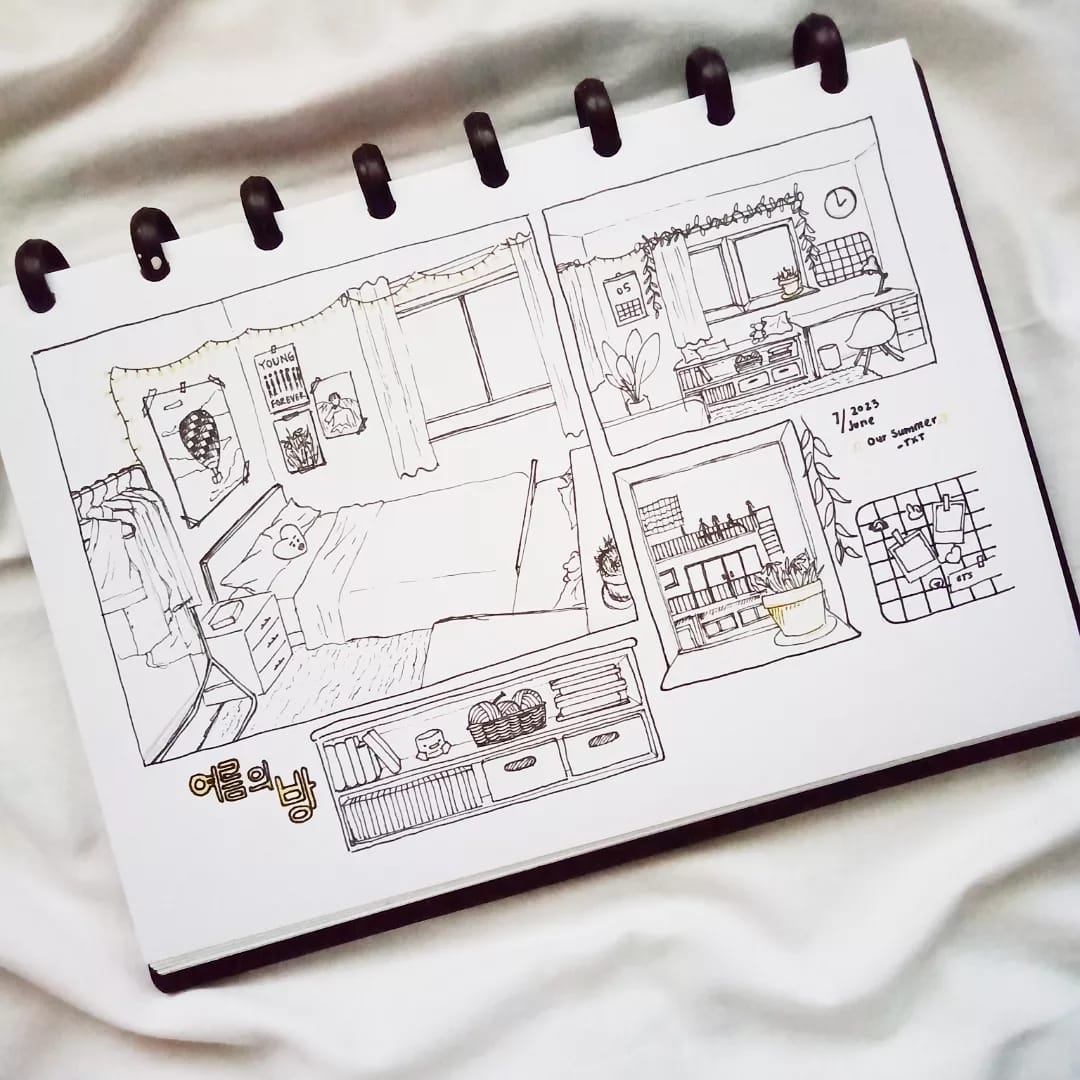 YOUNG
FOREVER
05
7/ 2023
June
Our Summer
-TXT
BTS
여름의 방